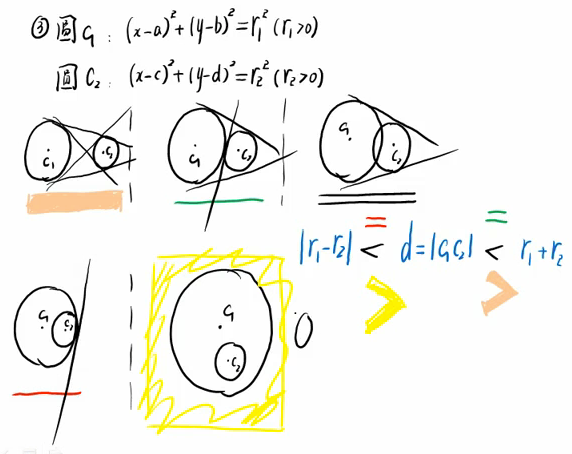 ③ 圓 C₁ : (x-a)²+(y-b)²=r₁² (r₁>0)
圓 C₂ : (x-c)²+(y-d)²=r₂² (r₂>0)
C₁ C₂ C₁ C₂ C₁ C₂
= =
|r₁-r₂| < d=|C₁C₂| < r₁+r₂
> >
C₁ C₂ C₁ C₂ 0